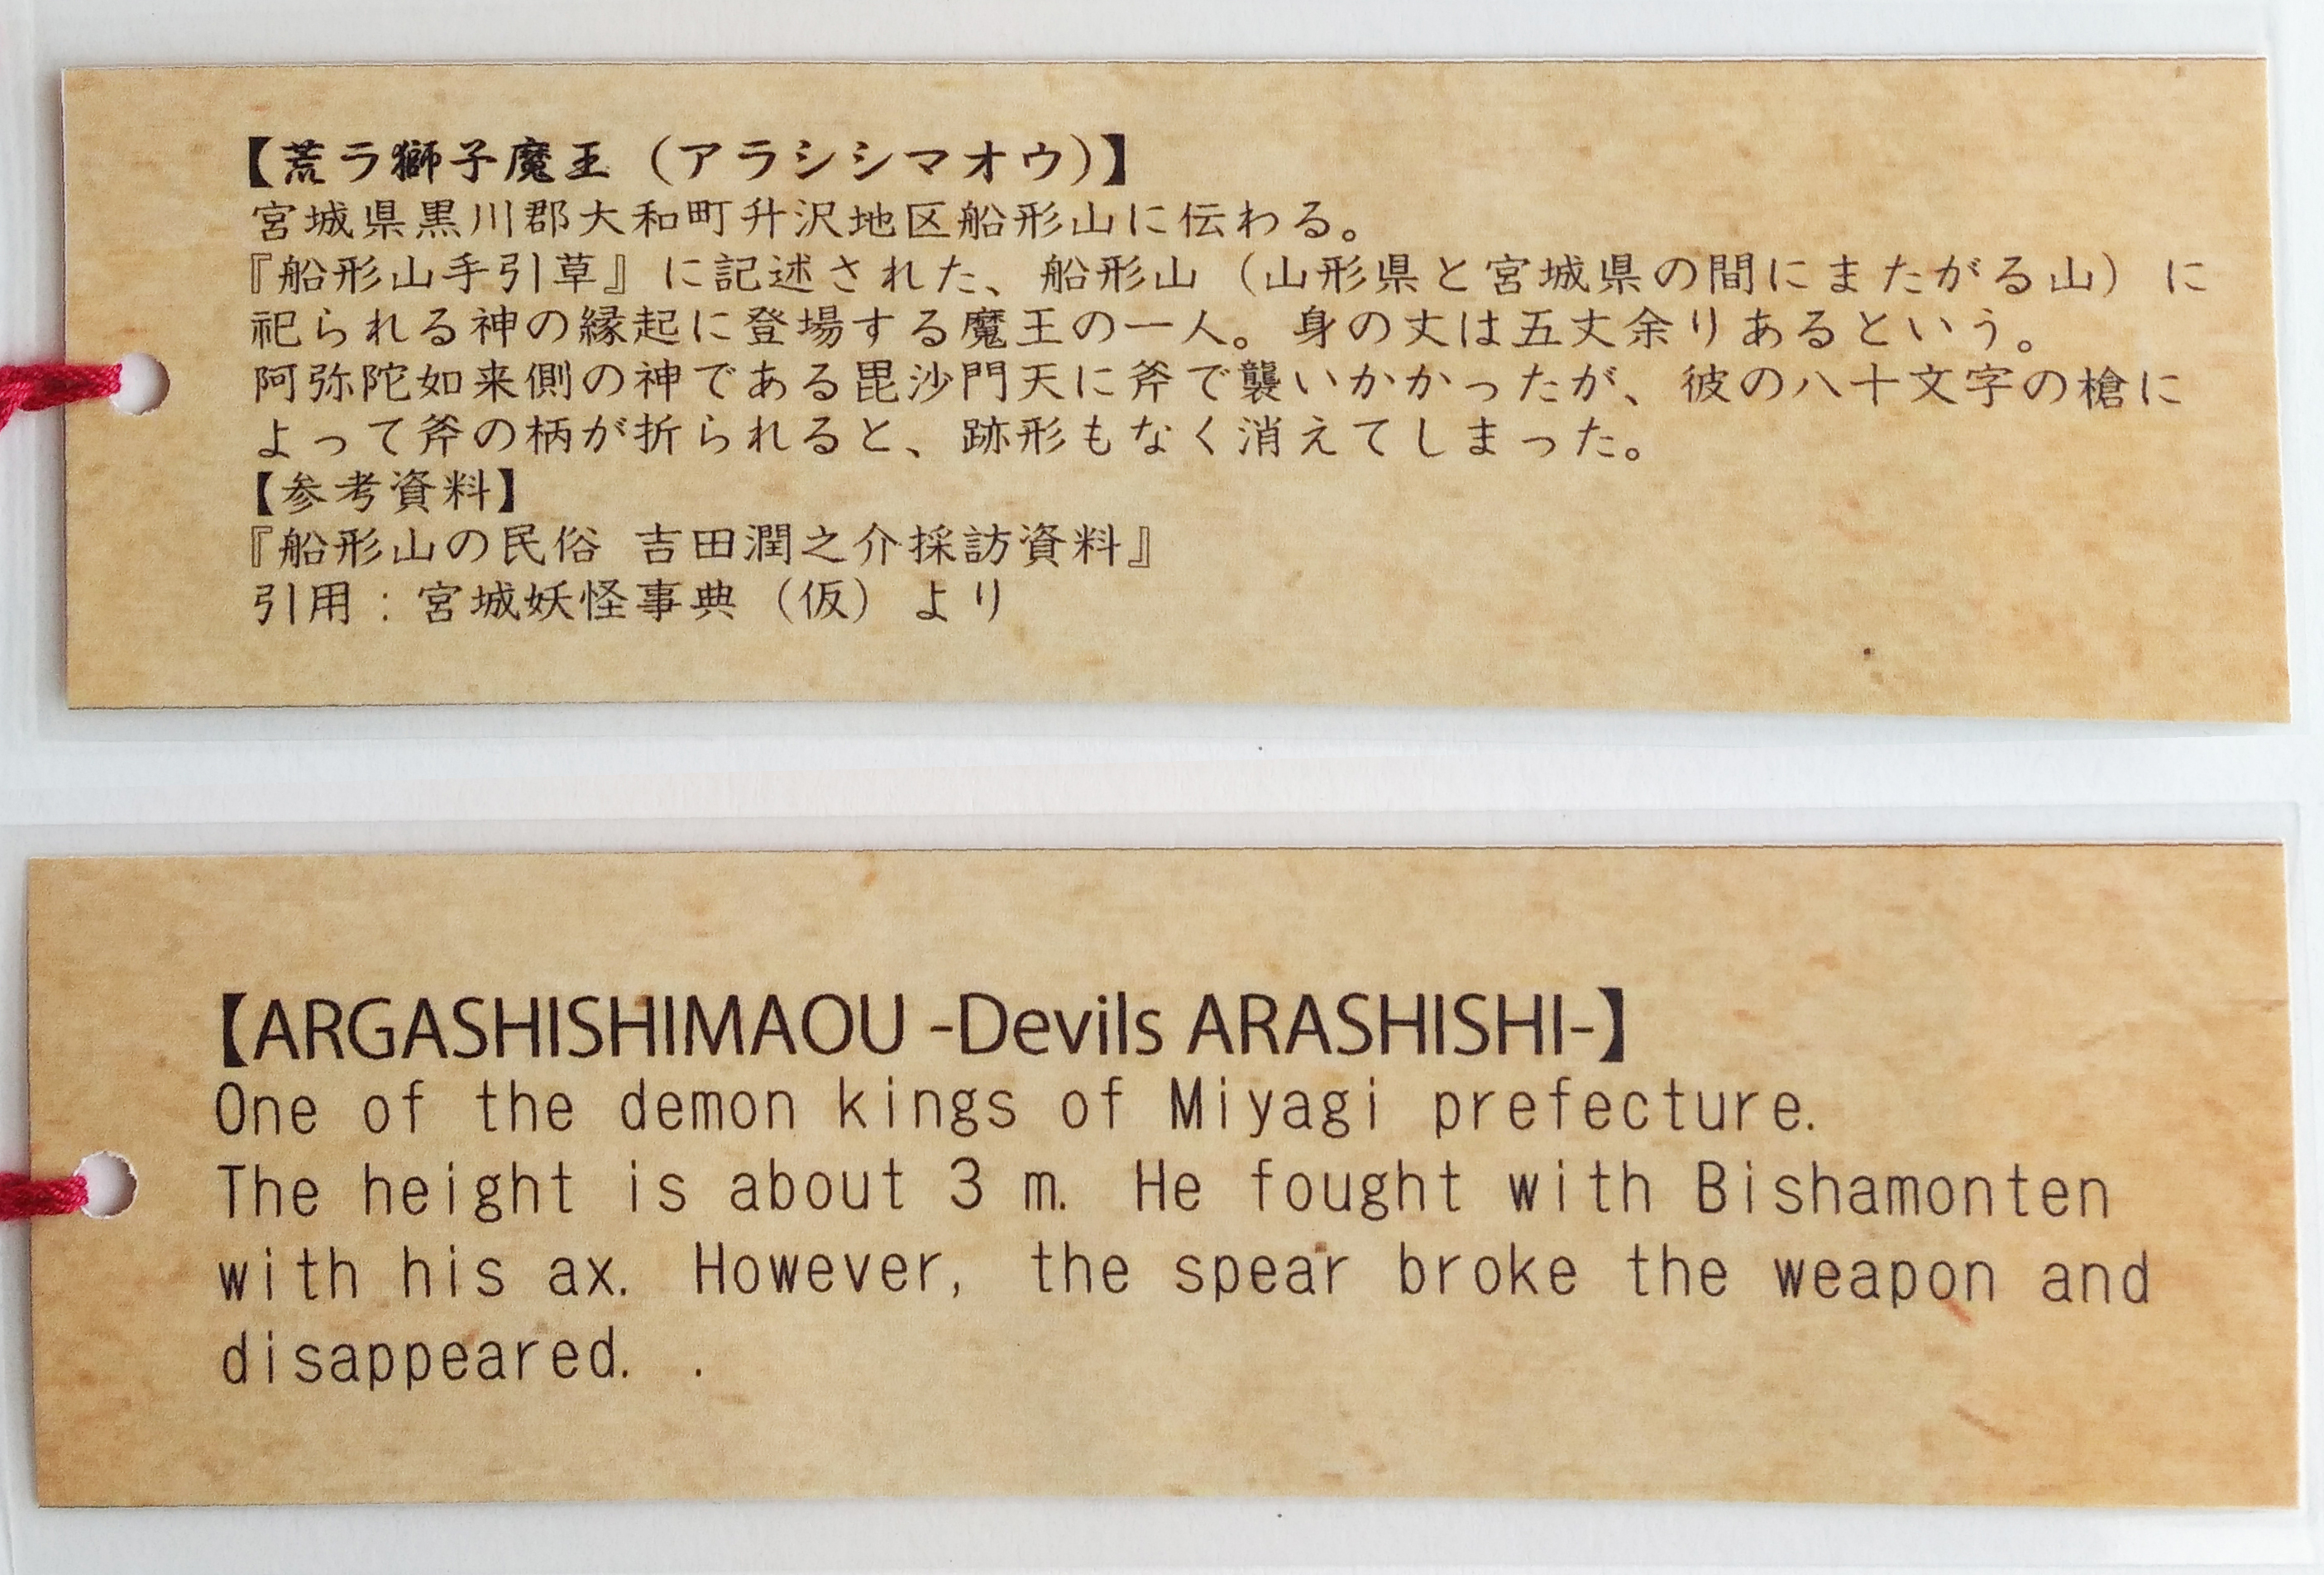 【荒ラ獅子魔王（アラシシマオウ）】
宮城県黒川郡大和町升沢地区船形山に伝わる。
『船形山手引草』に記述された、船形山（山形県と宮城県の間にまたがる山）に
祀られる神の縁起に登場する魔王の一人。身の丈は五丈余りあるという。
阿弥陀如来側の神である毘沙門天に斧で襲いかかったが、彼の八十文字の槍に
よって斧の柄が折られると、跡形もなく消えてしまった。
【参考資料】
『船形山の民俗 吉田潤之介採訪資料』
引用：宮城妖怪事典（仮）より
【ARGASHISHIMAOU -Devils ARASHISHI-】
One of the demon kings of Miyagi prefecture.
The height is about 3 m. He fought with Bishamonten
with his ax. However, the spear broke the weapon and
disappeared. .